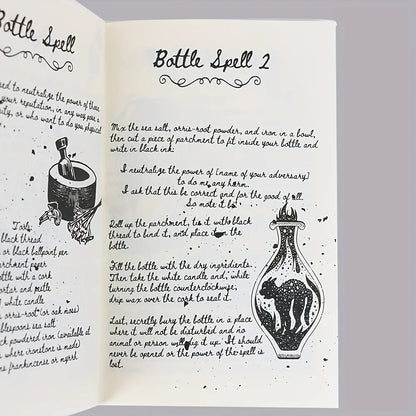 Bottle Spell
ed to neutralize the power of those
your reputation, in any way pose a
ity, or who want to do you physical
Tools:
black thread
or black ballpoint pen
archment paper
ottle with a cork
ortar and pestle
white candle
orris-root (or oak moss)
blespoons sea salt
black powdered iron (available at
where ironstone is made)
ns frankincense or myrrh
Bottle Spell 2
Mix the sea salt, orris-root powder, and iron in a bowl,
then cut a piece of parchment to fit inside your bottle and
write in black ink:
I neutralize the power of (name of your adversary)
to do me any harm.
I ask that this be correct and for the good of all.
So mote it be.
Roll up the parchment, tie it with black
thread to bind it, and place it in the
bottle.
Fill the bottle with the dry ingredients.
Then take the white candle and, while
turning the bottle counterclockwise,
drip wax over the cork to seal it.
Last, secretly bury the bottle in a place
where it will not be disturbed and no
animal or person will dig it up. It should
never be opened or the power of the spell is
lost.